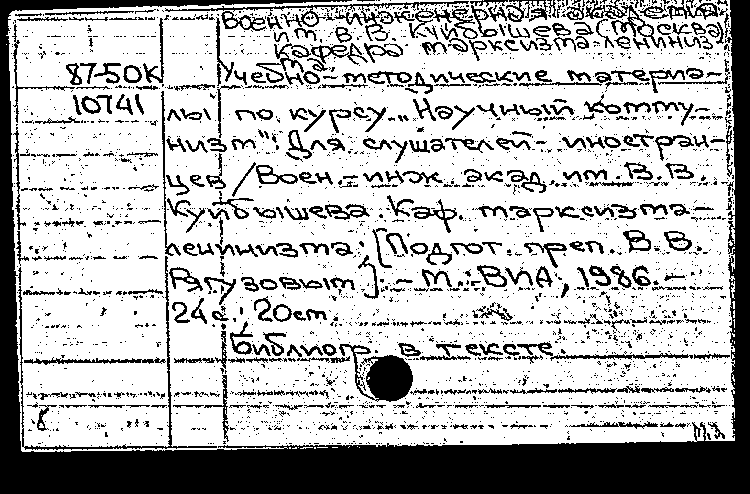 Военно-инженерная академия
им. В.В. Куйбышева (Москва)
Кафедра марксизма-ленинизма
87-50К Учебно-методические материа-
10741 лы по курсу „Научный комму-
низм": Для слушателей-иностран-
цев / Воен.-инж. акад. им. В.В.
Куйбышева. Каф. марксизма-
ленинизма; [Подгот. преп. В.В.
Рягузовым]. - М.: ВИА, 1986. -
24 с.; 20 см.
Библиогр. в тексте.